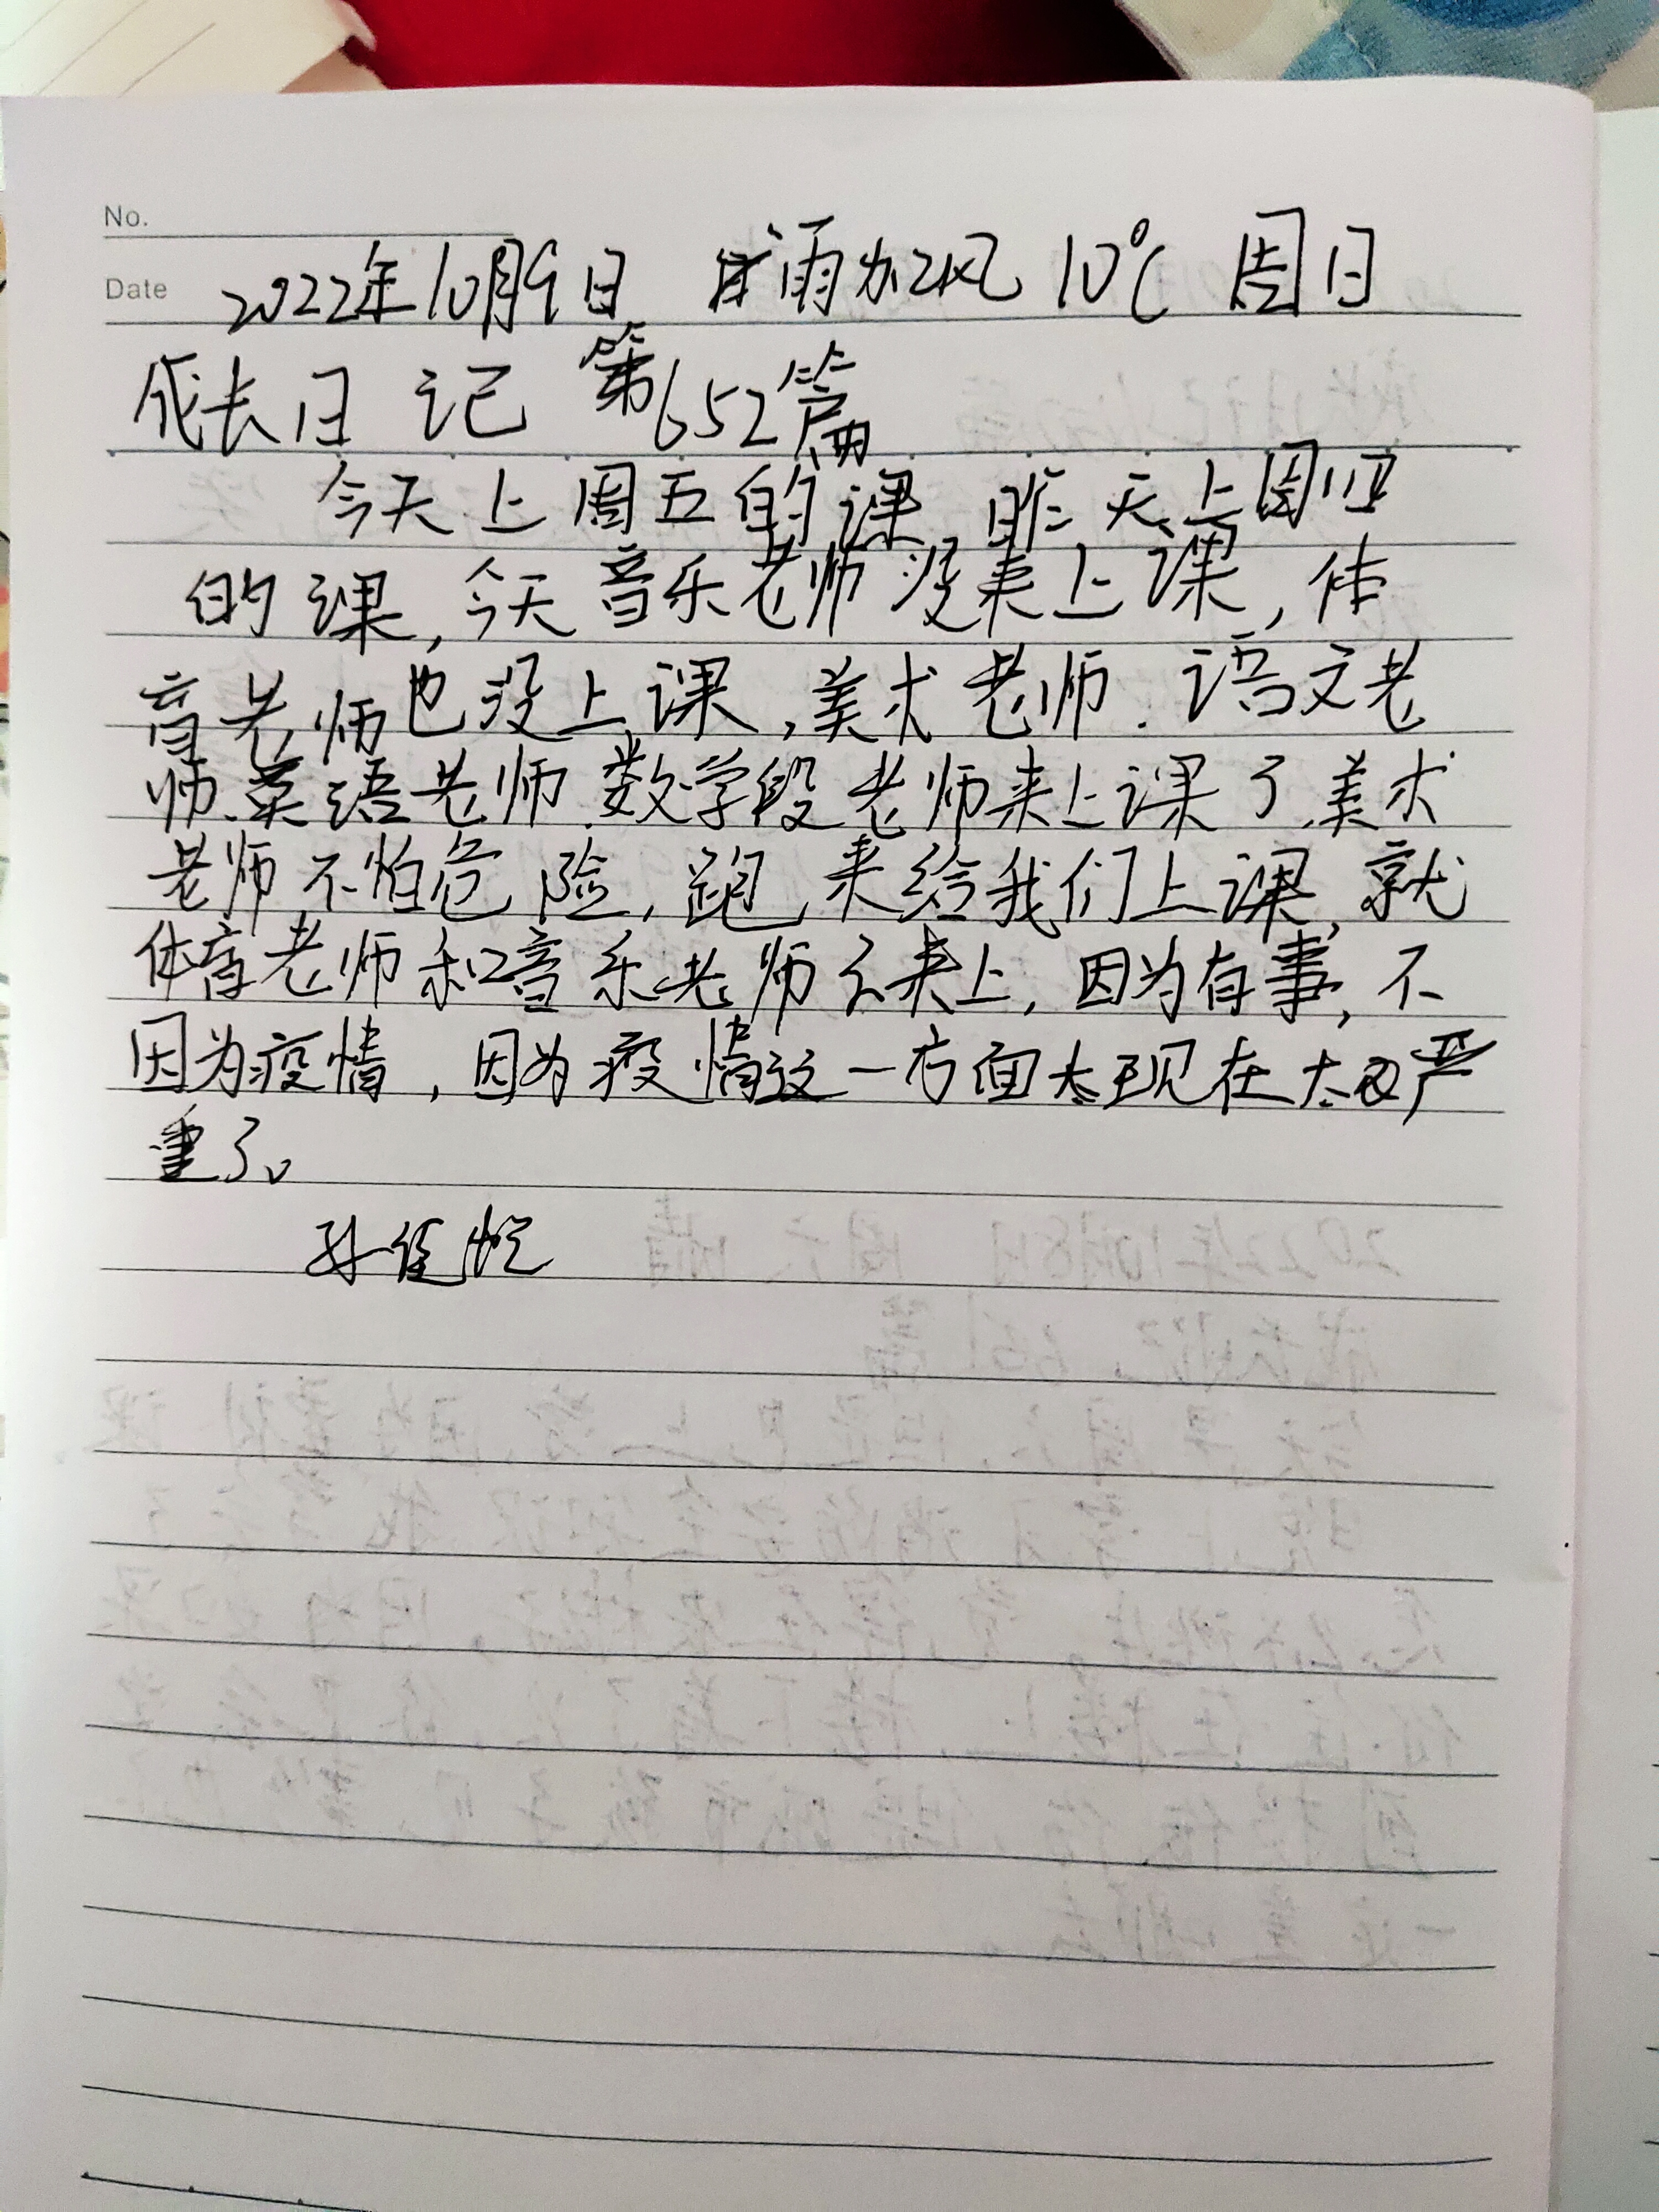 No.
Date 2022年10月9日 雨加风 10℃ 周日
成长日记 第652篇
今天上周五的课,昨天上周四
的课,今天音乐老师没来上课,体
育老师也没上课,美术老师、语文老
师、英语老师、数学段老师来上课了,美术
老师不怕危险,跑来给我们上课,就
体育老师和音乐老师不来上,因为有事,不
因为疫情,因为疫情这一方面太现在太严
重了。
孙佳悦